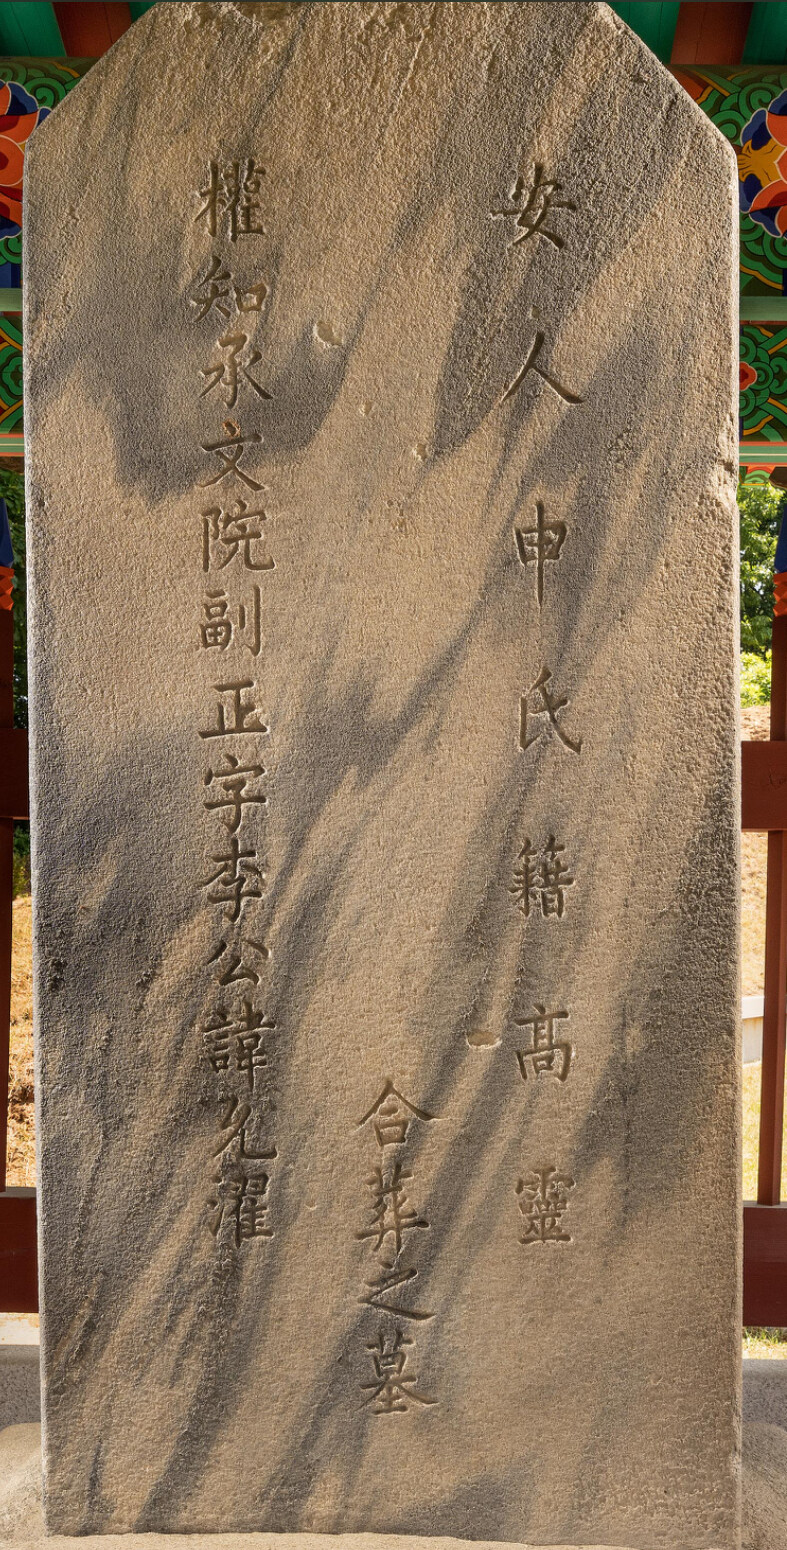 權知承文院副正字李公諱允濯
安人申氏籍髙靈
合葬之墓